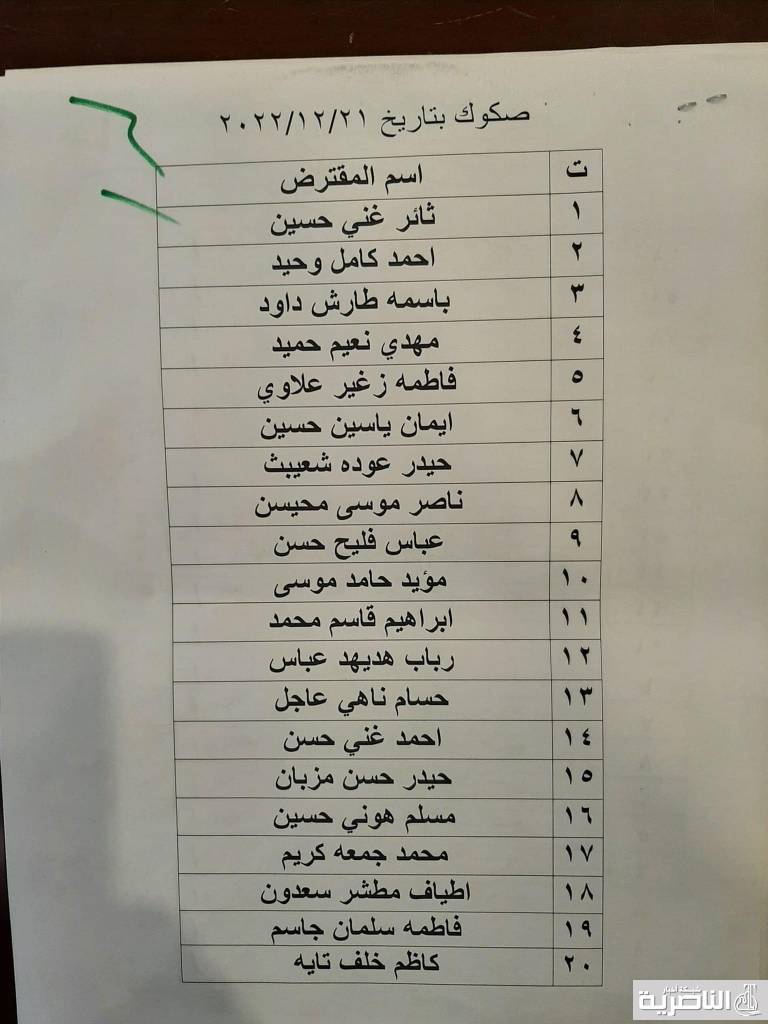 صكوك بتاريخ ٢٠٢٢/١٢/٢١
ت اسم المقترض
١ ثائر غني حسين
٢ احمد كامل وحيد
٣ باسمه طارش داود
٤ مهدي نعيم حميد
٥ فاطمه زغير علاوي
٦ ايمان ياسين حسين
٧ حيدر عوده شعيبث
٨ ناصر موسى محيسن
٩ عباس فليح حسن
١٠ مؤيد حامد موسى
١١ ابراهيم قاسم محمد
١٢ رباب هديهد عباس
١٣ حسام ناهي عاجل
١٤ احمد غني حسن
١٥ حيدر حسن مزبان
١٦ مسلم هوني حسين
١٧ محمد جمعه كريم
١٨ اطياف مطشر سعدون
١٩ فاطمه سلمان جاسم
٢٠ كاظم خلف تايه
شبكة أخبار
الناصرية